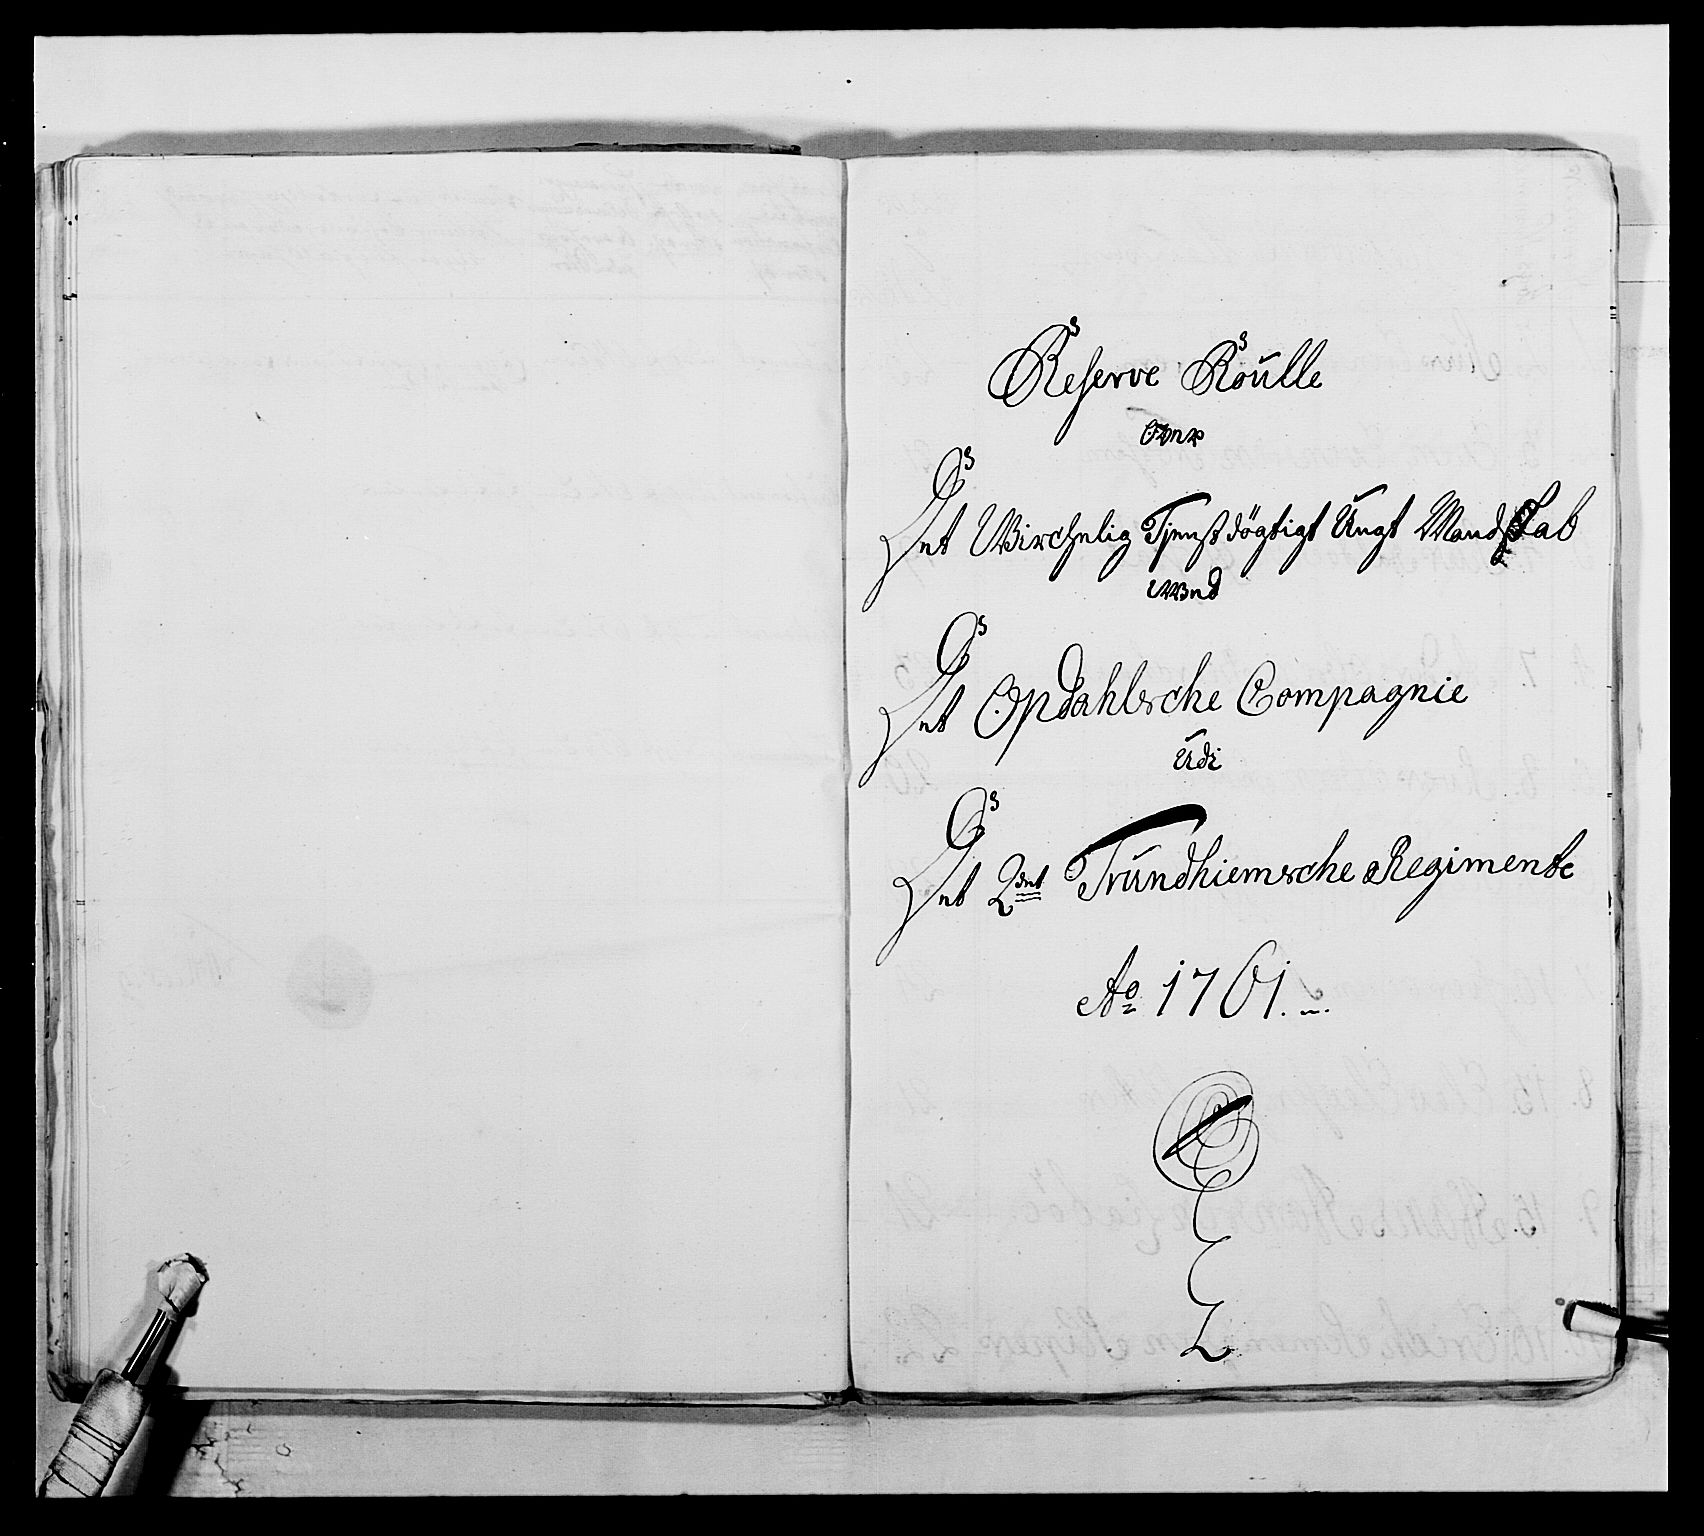 Reserve Roulle
Over
Det Virchelig Tjenstdögtigt Ungt Mandskab
Wed
Det Opdahlsche Compagnie
Udi
Det 2det Trundhiemsche Regimente
Ao 1761.